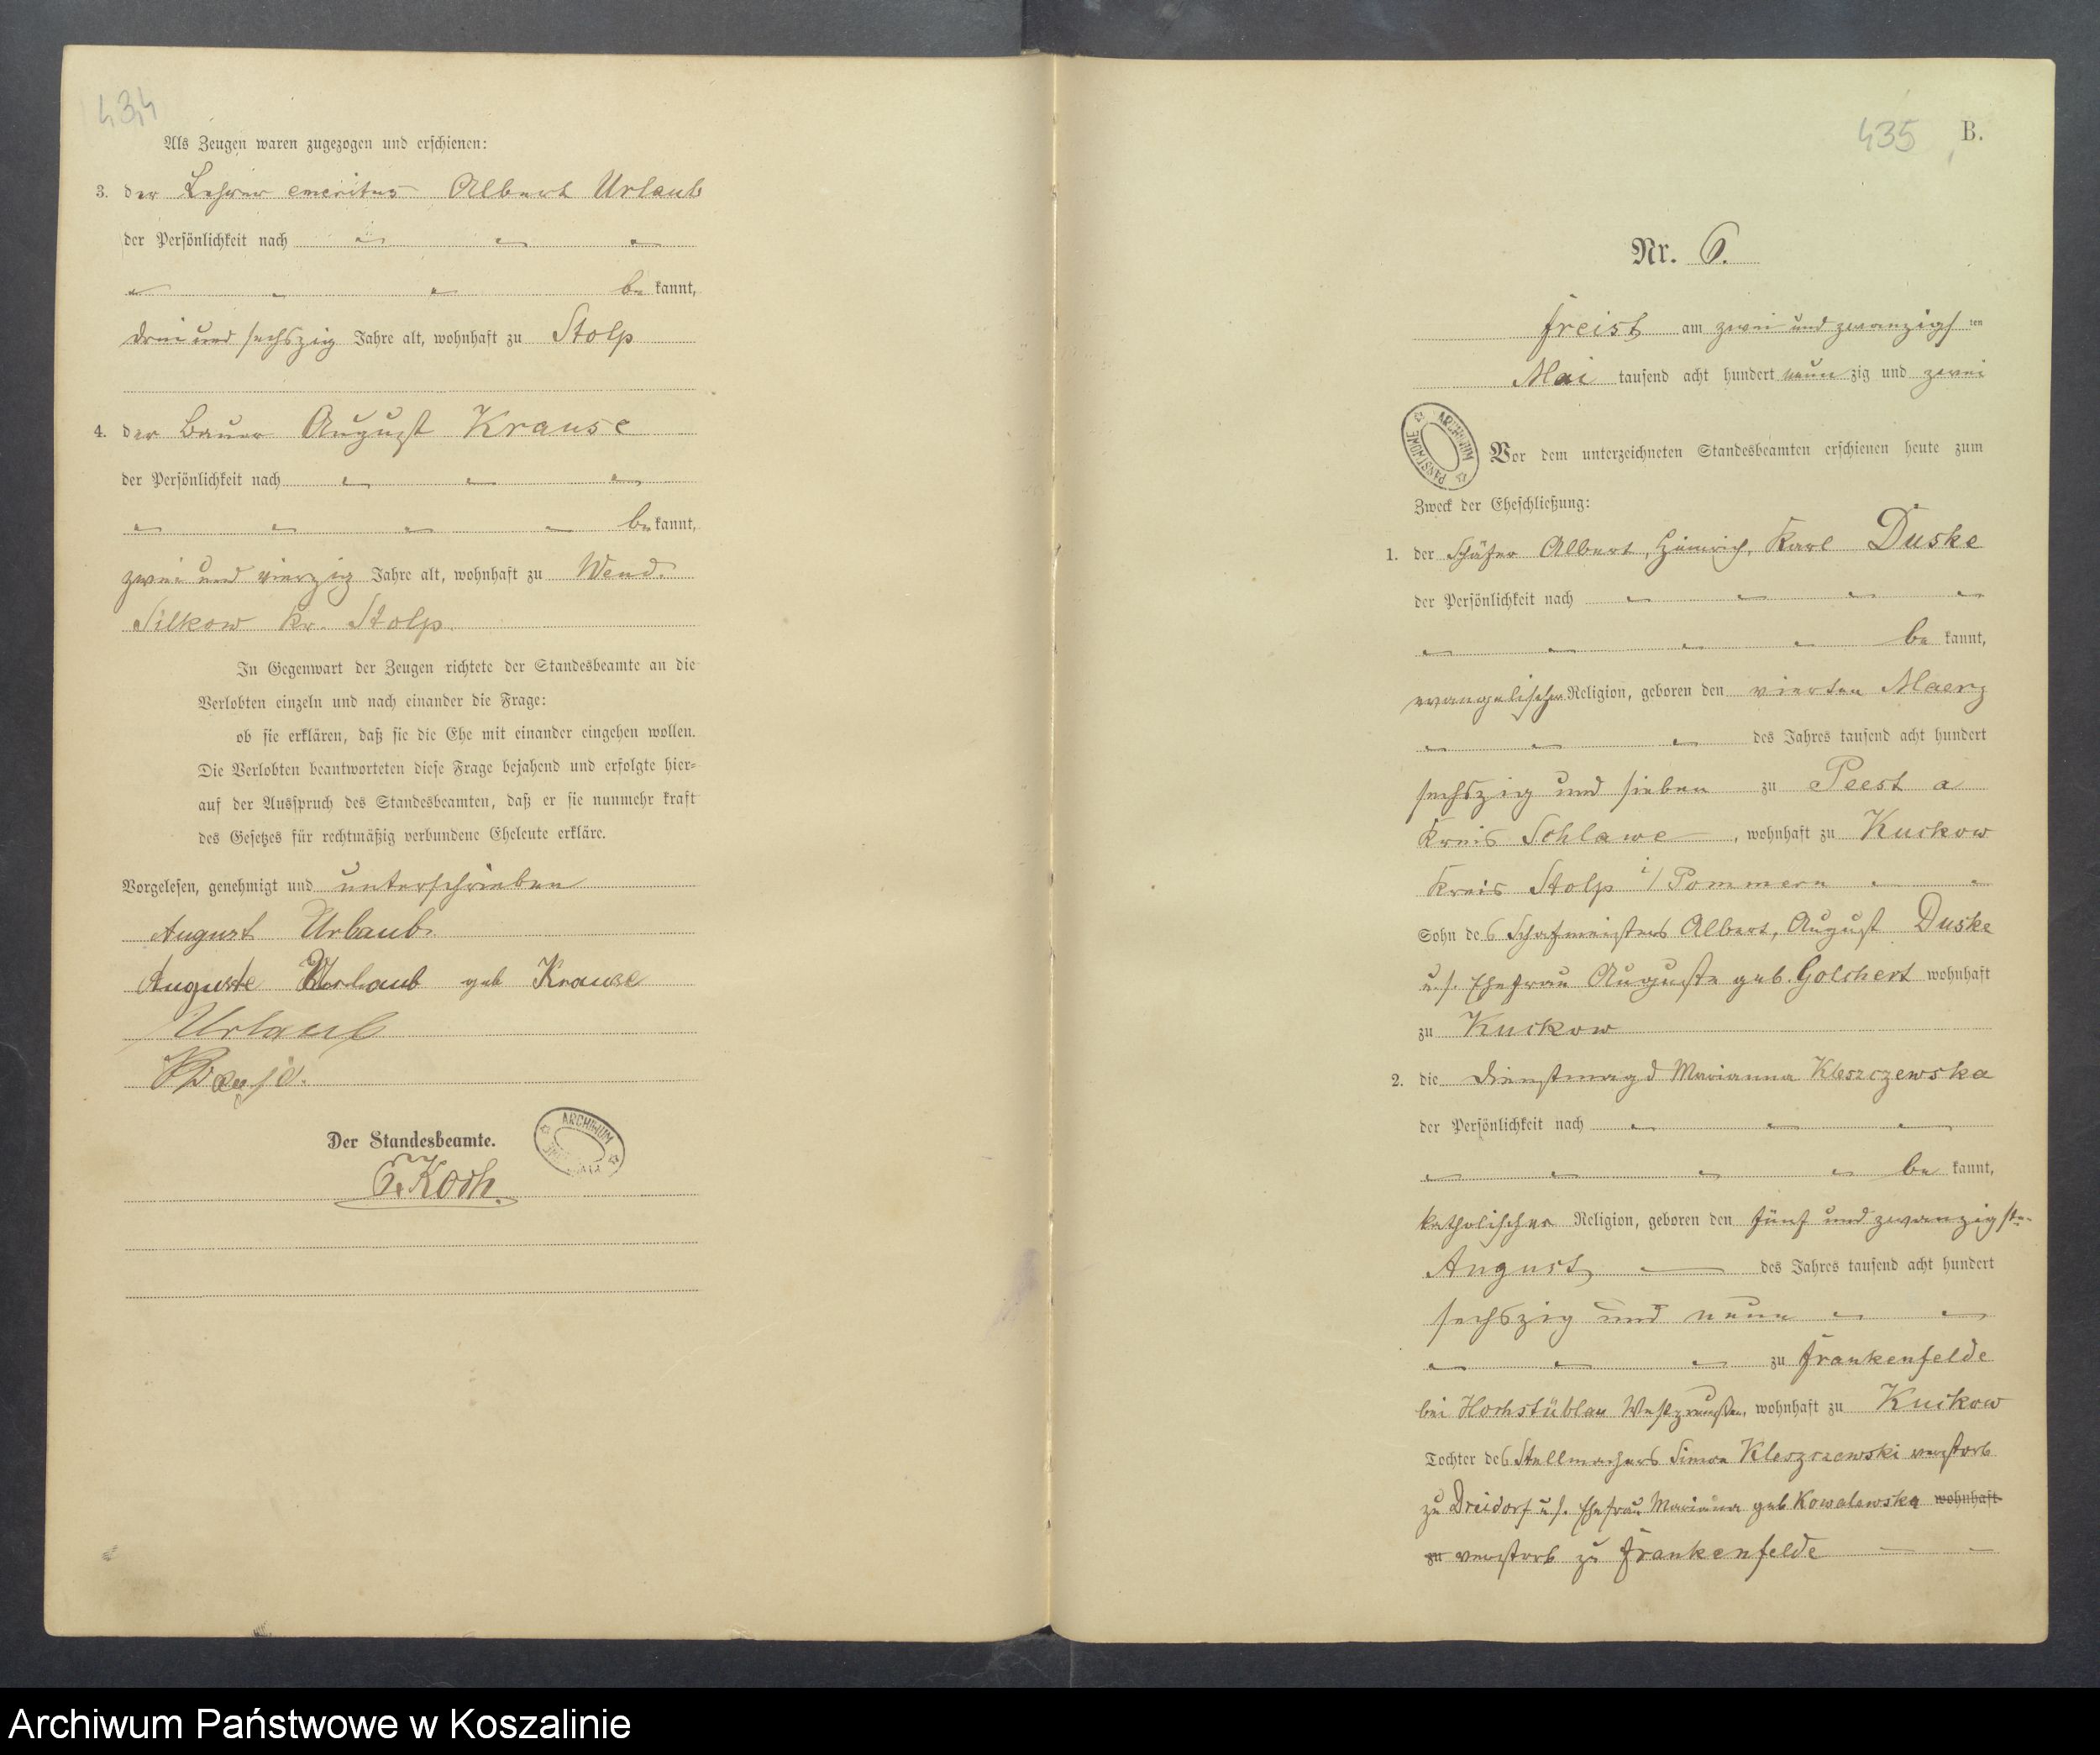 434
Als Zeugen waren zugezogen und erschienen:
3. der Lehrer emeritus Albert Urlaub
der Persönlichkeit nach
be kannt,
drei und sechszig Jahre alt, wohnhaft zu Stolp
4. der Bauer August Krause
der Persönlichkeit nach
be kannt,
zwei und vierzig Jahre alt, wohnhaft zu Wend.
Silkow Kr. Stolp.
In Gegenwart der Zeugen richtete der Standesbeamte an die
Verlobten einzeln und nach einander die Frage:
ob sie erklären, daß sie die Ehe mit einander eingehen wollen.
Die Verlobten beantworteten diese Frage bejahend und erfolgte hier-
auf der Ausspruch des Standesbeamten, daß er sie nunmehr kraft
des Gesetzes für rechtmäßig verbundene Eheleute erkläre.
Vorgelesen, genehmigt und unterschrieben
August Urlaub
Auguste Urlaub geb Krause
Urlaub
Der Standesbeamte.
ARCHIWUM
Koch.
435 B.
Nr. 6.
Freist am zwei und zwanzigsten
Mai tausend acht hundert neunzig und zwei
ARCHIWUM PAŃSTWOWE
Vor dem unterzeichneten Standesbeamten erschienen heute zum
Zweck der Eheschließung:
1. der Schäfer Albert, Heinrich, Karl Duske
der Persönlichkeit nach
be kannt,
evangelischer Religion, geboren den vierten Maerz
des Jahres tausend acht hundert
sechszig und sieben zu Peest a
Kreis Schlawe, wohnhaft zu Kuckow
Kreis Stolp i/Pommern
Sohn des Schafmeisters Albert, August Duske
u. s. Ehefrau Auguste geb. Golchert wohnhaft
zu Kuckow
2. die Dienstmagd Marianna Kleszczewska
der Persönlichkeit nach
be kannt,
katholischer Religion, geboren den fünf und zwanzigsten
August des Jahres tausend acht hundert
sechszig und neun
zu Frankenfelde
bei Hochstüblau Westpreußen, wohnhaft zu Kuckow
Tochter des Stellmachers Simon Kleszczewski verstorb
zu Dreidorf u. s. Ehefrau Marianna geb Kowalewska wohnhaft
zu verstorb zu Frankenfelde
Archiwum Państwowe w Koszalinie